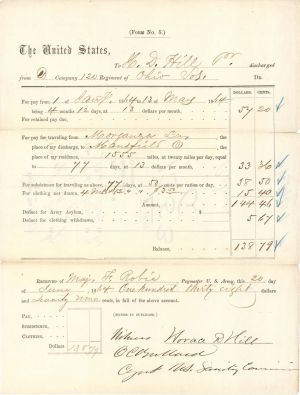 (Form No. 5.)
The United States,
To H. D. Hill Pt. discharged
from D Company 120 Regiment of Ohio Vols. Dr.
DOLLARS. CENTS.
For pay from 1 Jany. 64 13 May 64
being 4 months 12 days, at 13 dollars per month. 57 20
For retained pay due
For pay for traveling from Morganza La, the
place of my discharge, to Mansfield O the
place of my residence, 1555 miles, at twenty miles per day, equal
to 77 days, at 13 dollars per month. 33 36
For subsistence for traveling as above, 77 days, at 50 cents per ration or day. 38 50
For clothing not drawn, 15 40
Amount, 144 46
Deduct for Army Asylum,
Deduct for clothing withdrawn, 5 67
Balance, 138 79
RECEIVED of Maj. F. Robie Paymaster U. S. Army, this 20 day
of June 1864 One hundred thirty eight dollars
and seventy nine cents, in full of the above account.
(SIGNED IN DUPLICATE.)
PAY,
SUBSISTENCE,
CLOTHING,
Dollars 138 79
Witness Horace D Hill
Agent U.S. Sanitary Commission